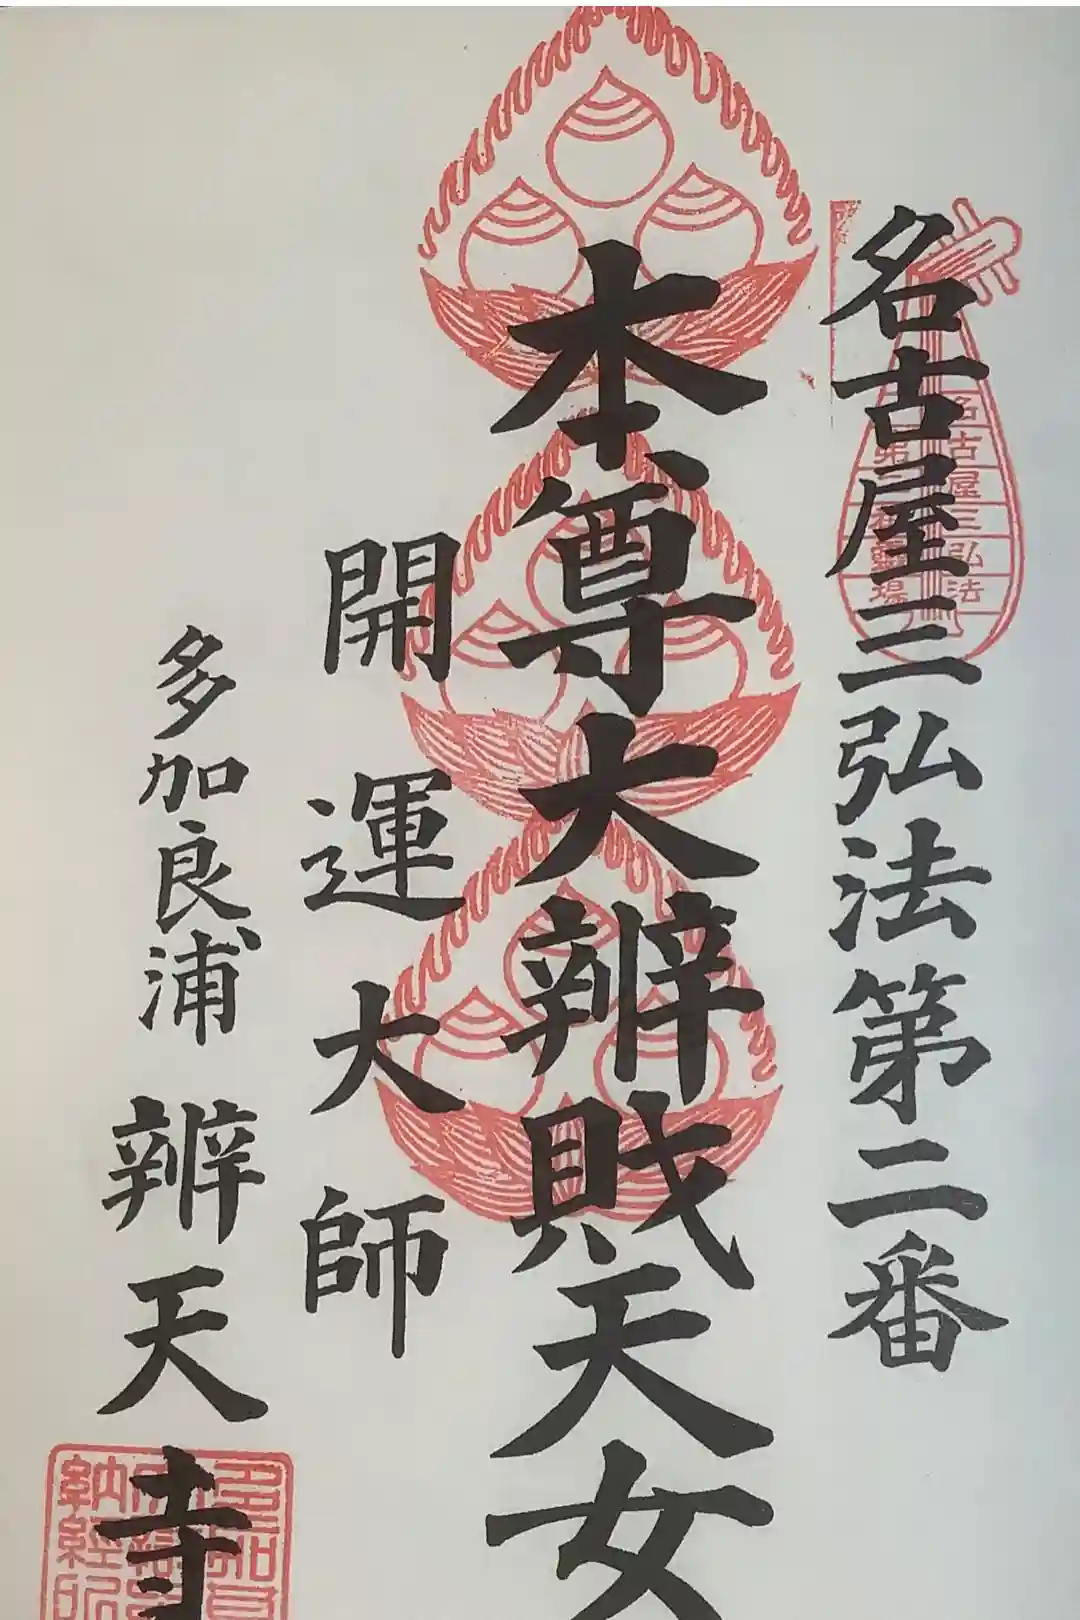 名古屋三弘法第二番
名古屋三弘法
本尊大辨財天女
開運大師
多加良浦 辨天寺
納経所